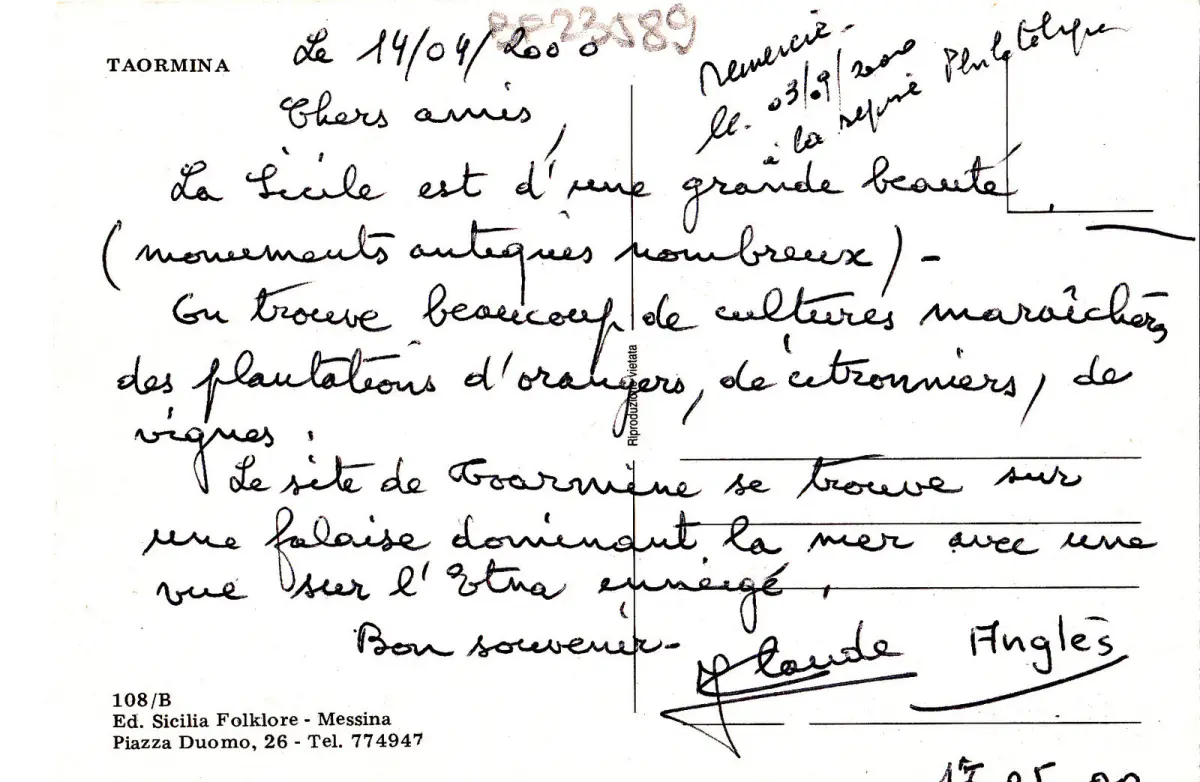 BF23589
TAORMINA
Le 14/04/2000
remercié -
le 03/09/2000
à la Philatélique
Chers amis,
La Sicile est d'une grande beauté
(monuments antiques nombreux) -
On trouve beaucoup de cultures maraîchères
des plantations d'orangers, de citronniers, de
vignes.
Le site de Taormine se trouve sur
une falaise dominant la mer avec une
vue sur l'Etna enneigé.
Bon souvenir -
Claude Anglès
Riproduzione vietata
108/B
Ed. Sicilia Folklore - Messina
Piazza Duomo, 26 - Tel. 774947